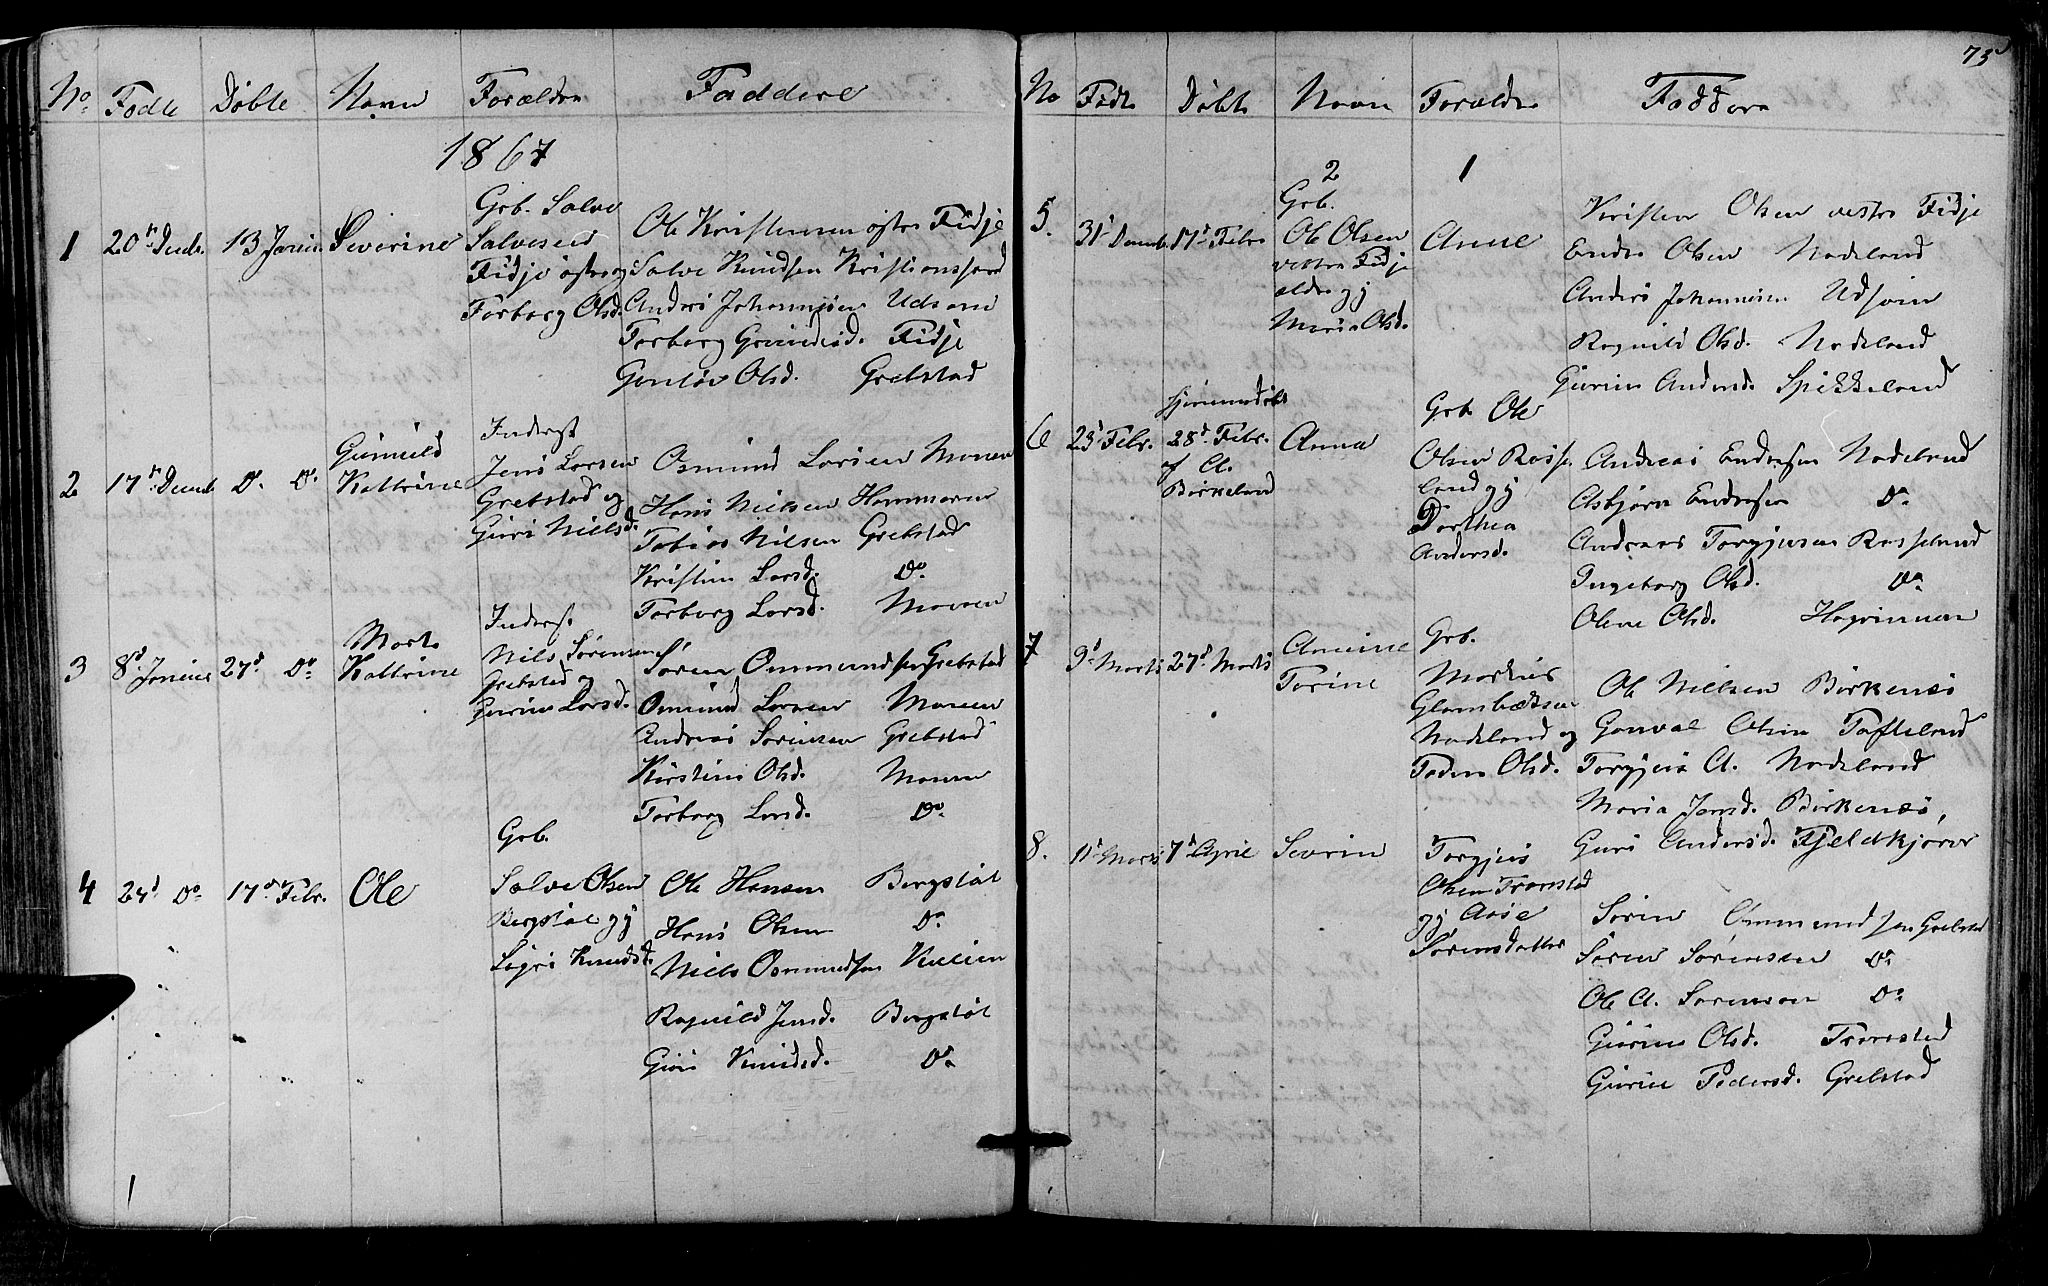 No. Fødte Døbte Navn Forældre Faddere
1867
1 20n Decbr. 13 Januar Severine
Grb. Salve
Salvesen
Fidje østre og
Torborg Olsd.
Ole Kristensen østre Fidje
Salve Knudsen Kristianssand
Andrés Johannesen Udsom
Torborg Gundersd. Fidje
Gonløv Olsd. Grebstad
2 17n Decmb. Do. Do.
Gunnild
Kattrine
Inderst
Jens Larsen
Grebstad og
Guri Nielsd.
Osmund Larsen Monen
Hans Nielsen Hammaren
Tobias Nilsen Grebstad
Kristine Larsd. Do.
Torborg Larsd. Monen
3 8d Januar 27d. Do.
Marte
Kattrine
Inderst
Nils Sørensen
Grebstad og
Gurine Larsd.
Søren Ommundsen Grebstad
Osmund Larsen Monen
Andreas Sørensen Grebstad
Kirstine Olsd. Monen
Torborg Larsd. Do.
4 24d. Do. 17de Febr. Ole
Grb.
Salve Olsen
Bergstøl og
Sigri Knudsd.
Ole Hansen Bergstøl
Hans Olsen Do.
Niels Osmundsen
Ragnild Jensd. Bergstøl
Guri Knudsd. Do.
73
No Fødte Døbte Navn Forældre Faddere
2 1
5. 31t Decmb. 17d. Febr. Anne
Grb.
Ole Olsen
vestre Fidje
ældre og
Maria Olsd.
Kristen Olsen vestre Fidje
Endre Olsen Nadeland
Andrés Johannesen Udsom
Ragnild Olsd. Nadeland
Gurine Andersd. Spikkeland
6 23d Febr.
hjemmedøbt
28d. Febr.
af A.
Birkeland
Anna
Grb. Ole
Olsen Rosse-
land og
Dorthea
Andersd.
Andreas Endresen Nadeland
Asbjørn Endresen Do.
Andreas Torgjusen Rosseland
Ingeborg Olsd. Do.
Olene Olsd.
7 9d Marts 27d. Marts
Anine
Torine
Grb.
Markus
Glambæksen
Nadeland og
Todne Olsd.
Ole Nielsen Birkenæs
Gonval Olsen Tofteland
Torgjus A. Nadeland
Maria Jensd. Birkenæs,
Guri Andersd. Fjeldkjærr
8. 11t Marts 7d April Severin
Torgjus
Olsen Tronstad
og Aase
Sørensdatter
Søren Ommundsen Grebstad
Søren Sørensen Do.
Ole A. Sørensen Do.
Gurine Olsd. Tronstad
Gurine Pedersd. Grebstad